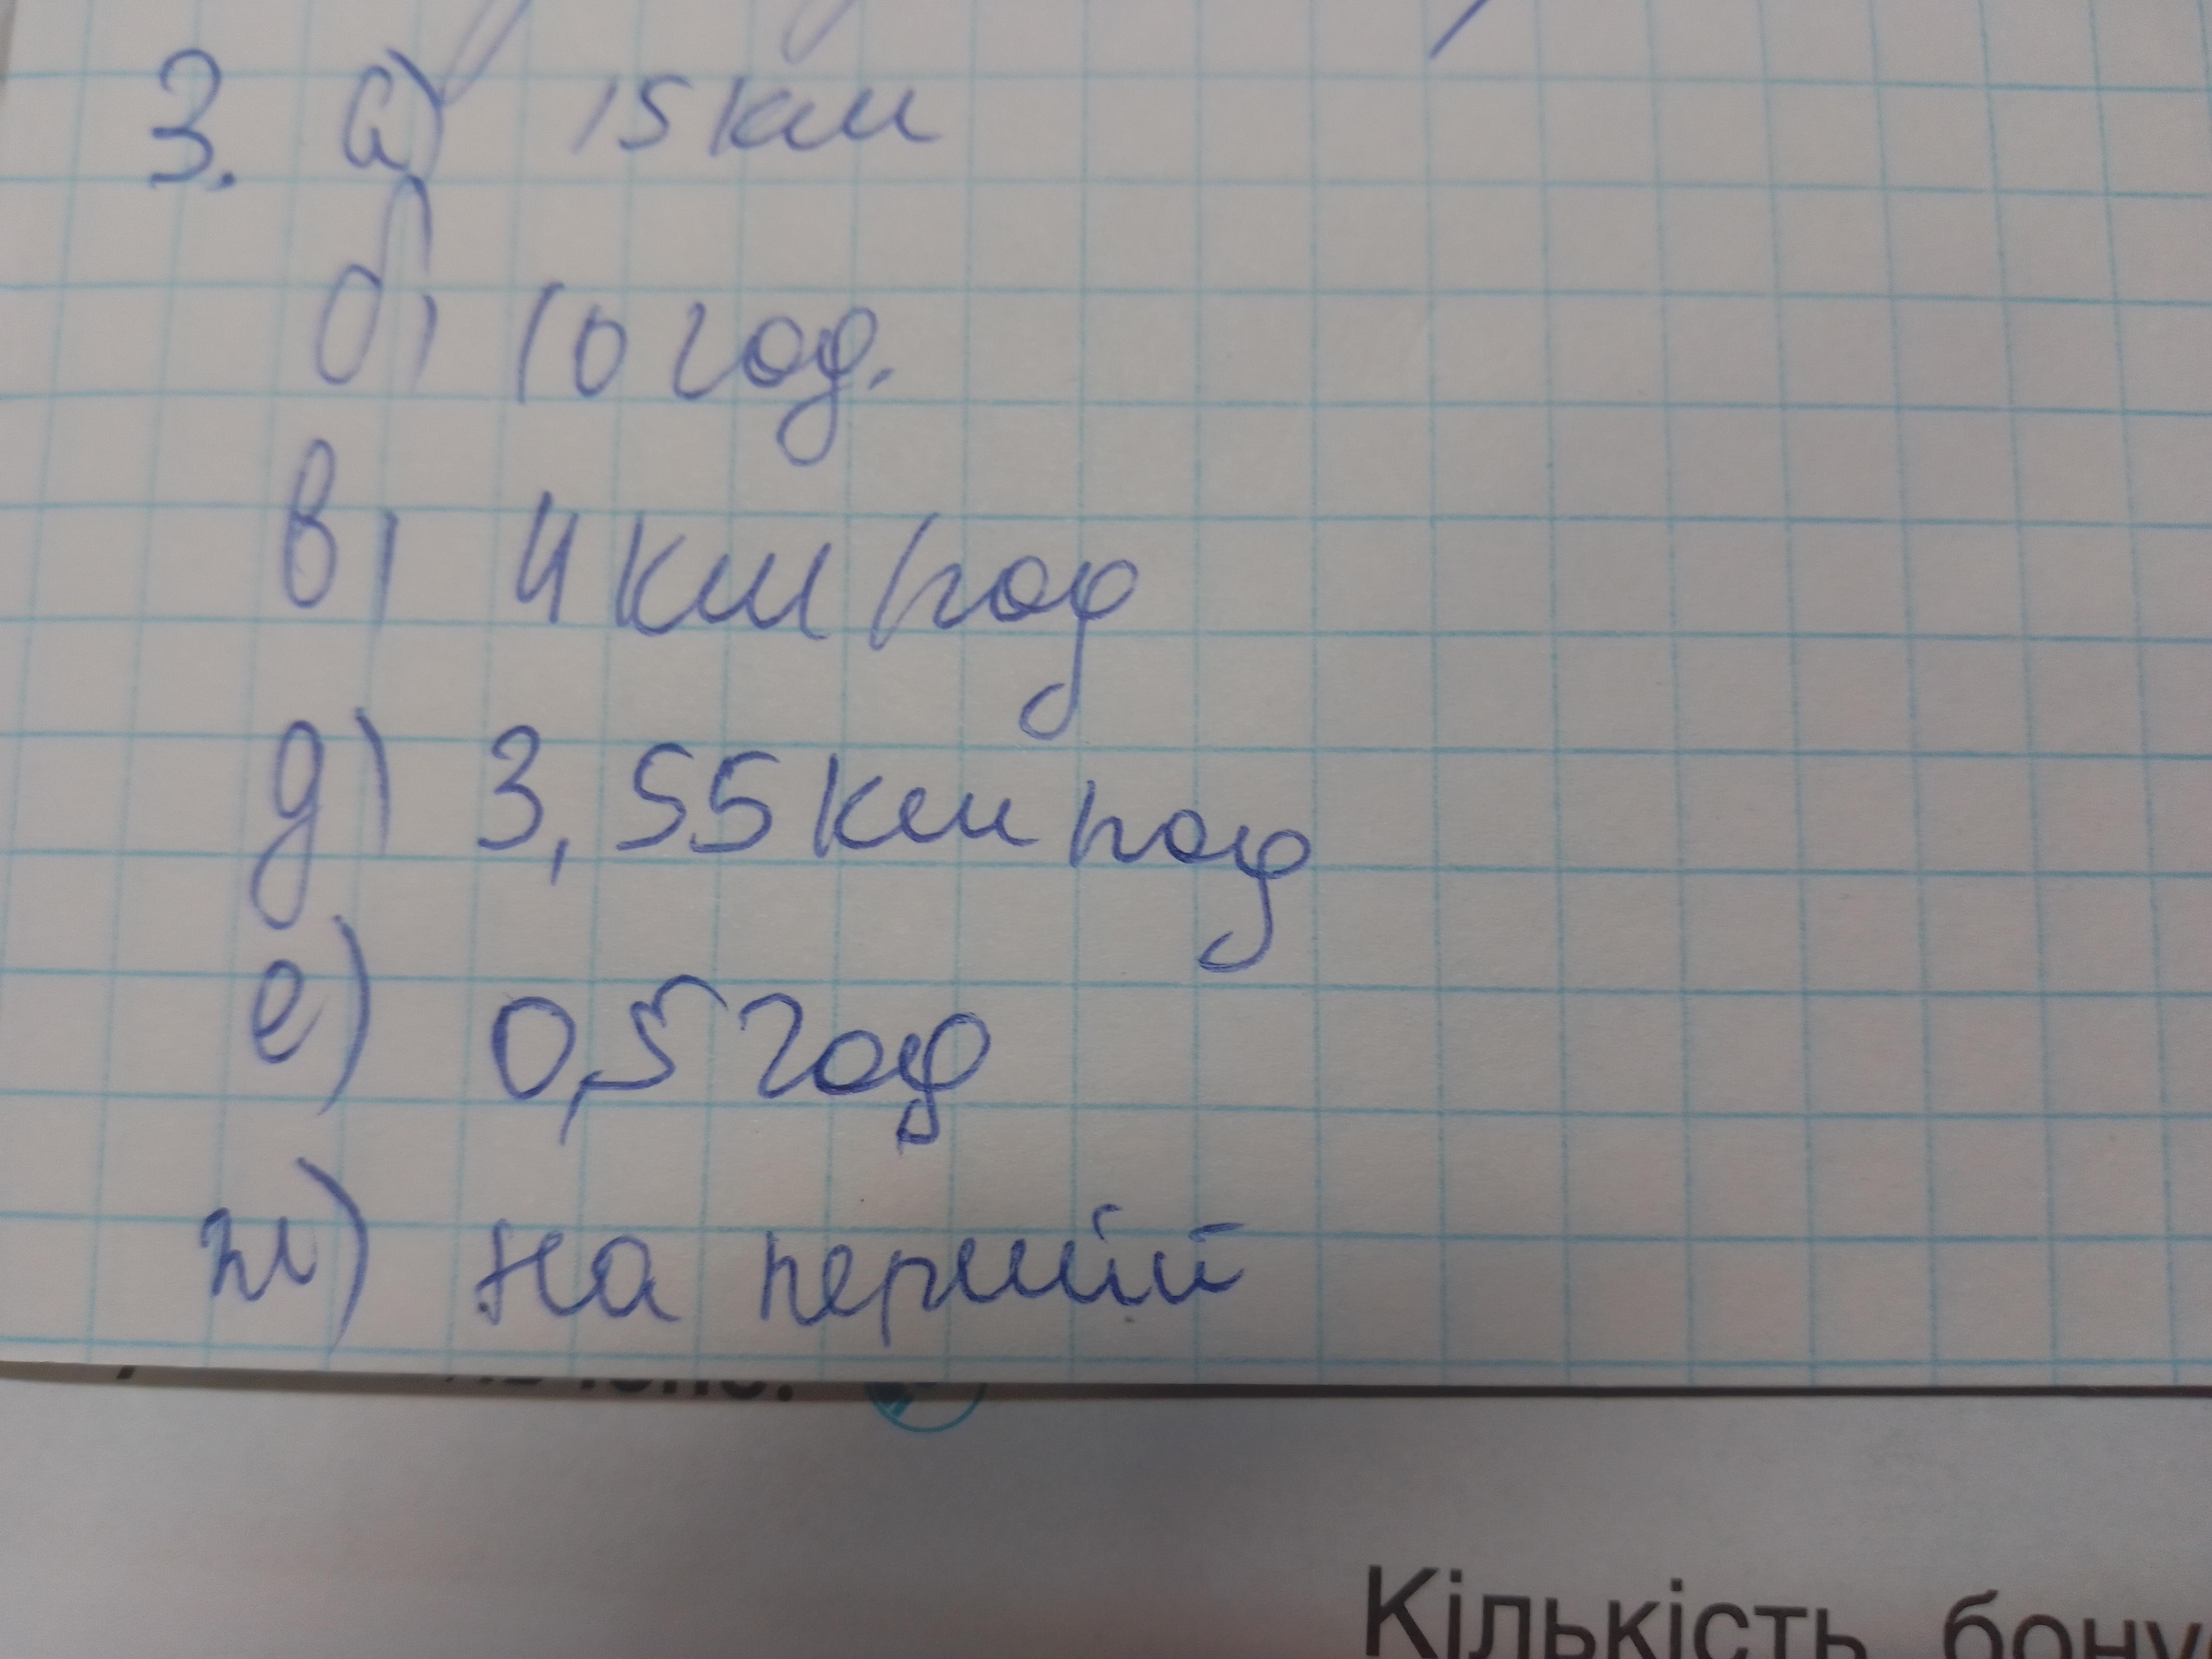 3. а) 15 км
б) 10 год.
в) 4 км/год
д) 3,55 км/год
е) 0,5 год
ж) на першій
Кількість бону